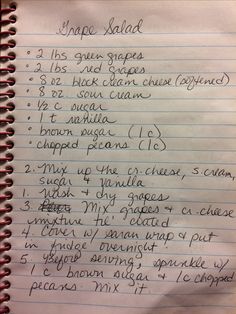 Grape Salad
• 2 lbs green grapes
• 2 lbs red grapes
• 8 oz block cream cheese (softened)
• 8 oz. sour cream
• ½ c sugar
• 1 t vanilla
• brown sugar (1 c)
• chopped pecans (1 c)
2. Mix up the cr. cheese, s. cream,
sugar & vanilla
1. Wash & dry grapes
3. Mix grapes & cr. cheese
mixture til' coated
4. Cover w/ saran wrap & put
in fridge overnight!
5. Before serving, sprinkle w/
1 c brown sugar & 1 c chopped
pecans. Mix it